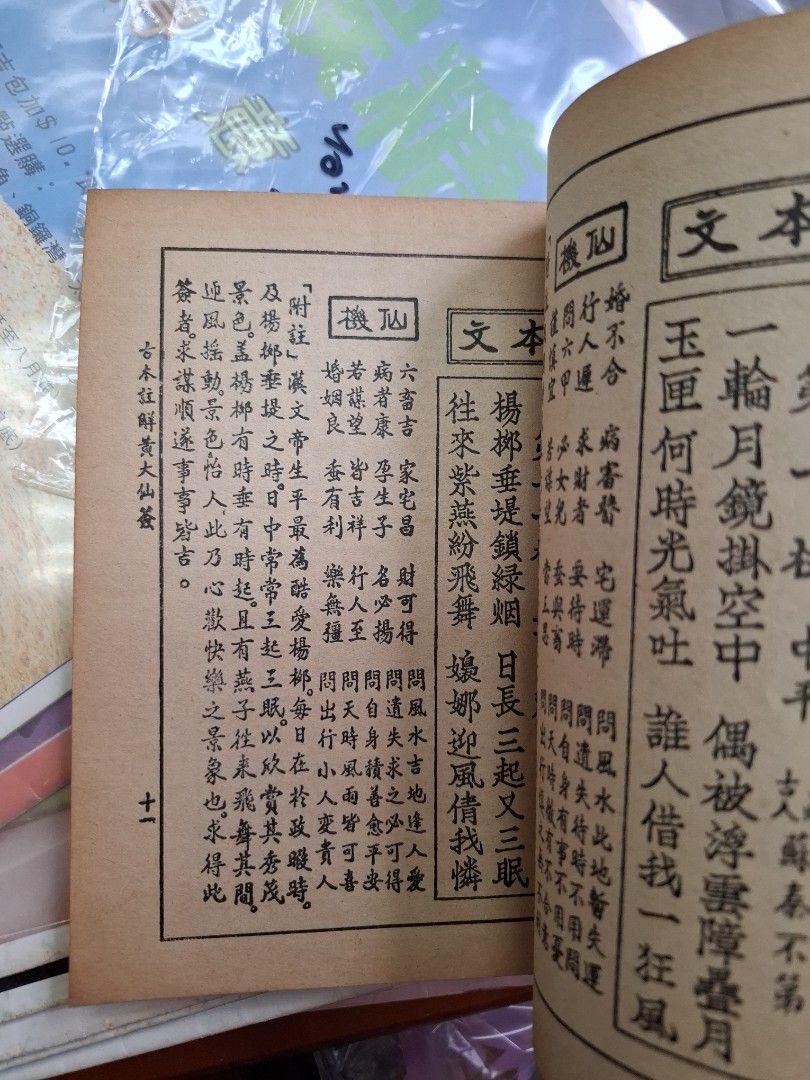 本文
中平
蘇秦不第
一輪月鏡掛空中 偶被浮雲障疊月
玉匣何時光氣吐 誰人借我一狂風
仙機
婚不合 病審醫 宅運滯 問風水此地暫失運
行人遲 求財者 要待時 問遺失待時不用問
問六甲 必女兒 蚕與畜 問自身有事不用憂
慎宜 若謀望
本文
楊柳垂堤鎖綠烟 日長三起又三眠
徃來紫燕紛飛舞 嬝娜迎風倩我憐
仙機
六畜吉 家宅昌 財可得 問風水吉地逢人愛
病者康 孕生子 名必揚 問遺失求之必可得
若謀望 皆吉祥 行人至 問自身積善愈平安
婚姻良 蚕有利 樂無疆 問天時風雨皆可喜
問出行小人變貴人
「附註」漢文帝生平最為酷愛楊柳。每日在於政暇時。
及楊柳垂堤之時。日中常常三起三眠。以欣賞其秀茂
景色。盖楊柳有時垂有時起。且有燕子徃來飛舞其間。
迎風搖動。景色怡人。此乃心歡快樂之景象也。求得此
簽者。求謀順遂事事皆吉。
古本註解黃大仙簽
十一
包加$10
點選購：
魚、銅鑼灣
至八月